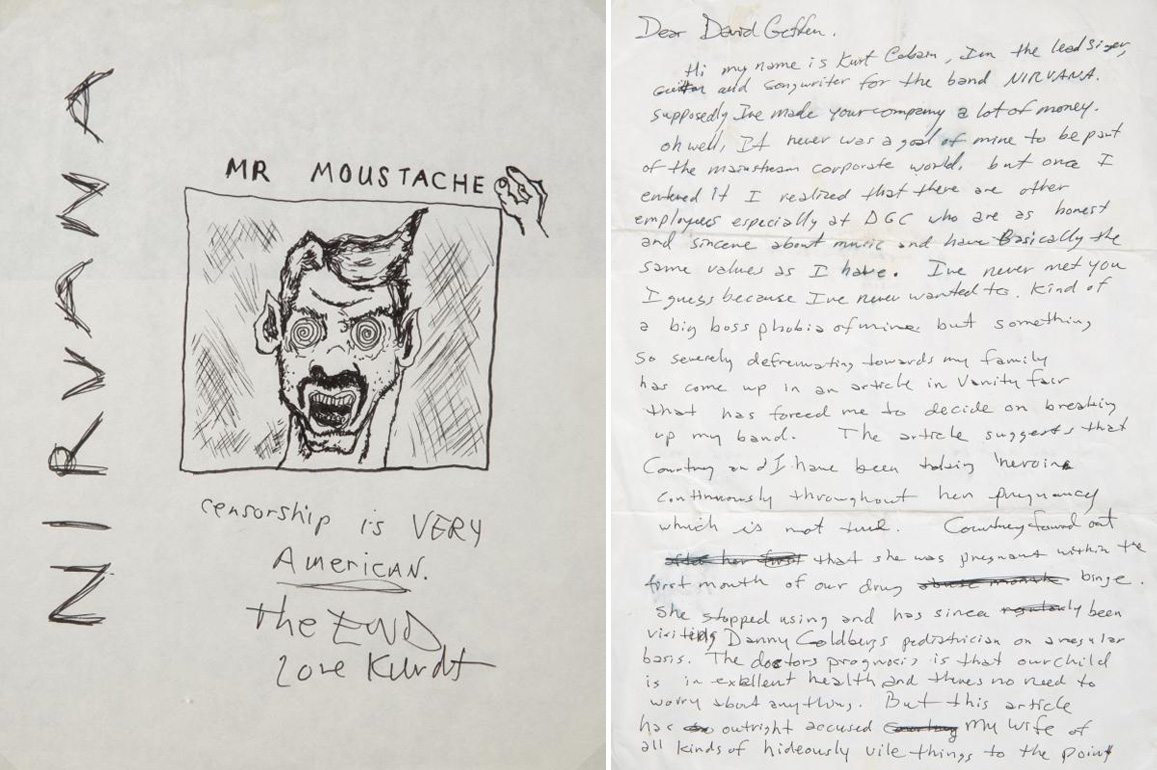 NIRVANA
MR MOUSTACHE
censorship is VERY
American.
the END
love Kurdt
Dear David Geffen.
Hi my name is Kurt Cobain, Im the lead siger,
and songwriter for the band NIRVANA.
supposedly Ive made your company a lot of money.
oh well, It never was a goal of mine to be part
of the mainstream corporate world. but once I
entered it I realized that there are other
employees especially at DGC who are as honest
and sincere about music and have Basically the
same values as I have. Ive never met you
I guess because Ive never wanted to. Kind of
a big boss phobia of mine. but something
so severely defremating towards my family
has come up in an article in Vanity fair
that has forced me to decide on breaking
up my band. The article suggests that
Courtney and I have been taking heroine
continuously throughout her pregnancy
which is not true. Courtney found out
after her first that she was pregnant within the
first month of our drug binge.
She stopped using and has since been
visiting Danny Goldbergs pediatrician on a regular
basis. The doctors prognosis is that our child
is in exellent health and theres no need to
worry about anything. But this article
has outright accused Courtney My wife of
all kinds of hideously vile things to the point